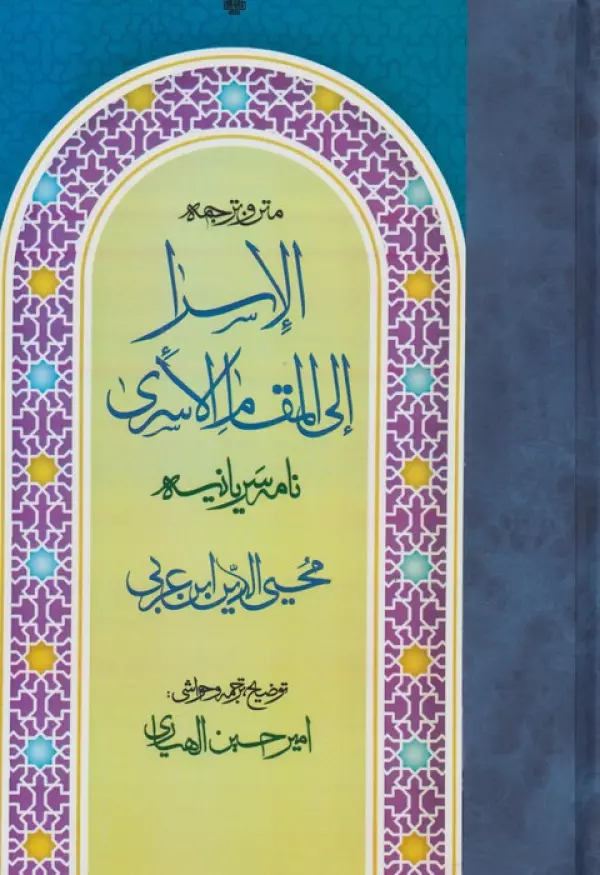 متن و ترجمه
الإسرا
إلی المقام الأسری
نامه سَریانیه
محیی الدّین ابن عربی
توضیح، ترجمه و حواشی:
امیر حسین الهیاری